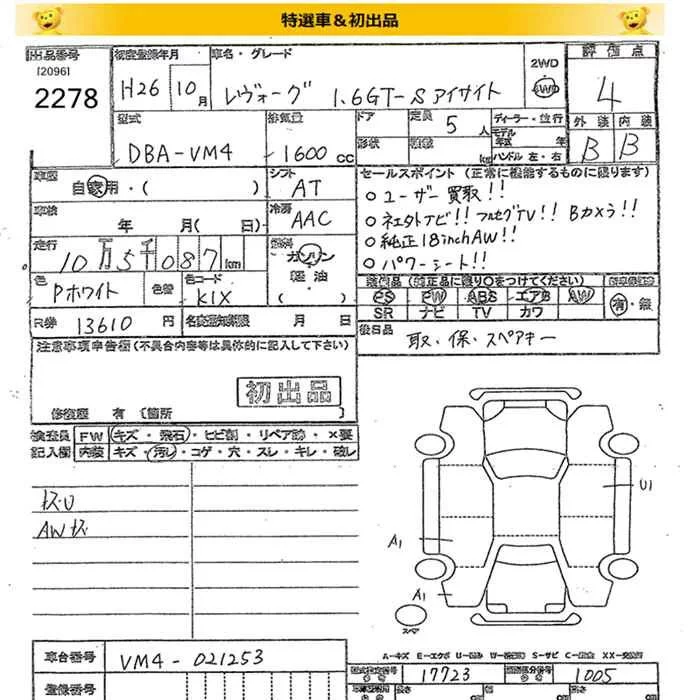 特選車&初出品
出品番号 初度登録年月 車名・グレード 2WD 評価点
[2096]
2278 H26 10月 レヴォーグ 1.6GT-S アイサイト 4WD 4
型式 排気量 ドア 定員 5人 ディーラー・並行 外装 内装
DBA-VM4 1600cc 形状 積載 kg ハンドル 左・右 B B
車歴 自家用・( ) シフト AT セールスポイント(正常に機能するものに限ります)
○ユーザー買取!!
車検 年 月( 日) 冷房 AAC ○ネェタトナビ!! フルセグTV!! Bカメラ!!
○純正18inchAW!!
走行 10万5千087km 燃料 ガソリン 軽油 ( ) ○パワーシート!!
色 Pホワイト 色替 色コード K1X
装備品(純正品に限り○をつけてください)
PS PW ABS エアB AW 有・無
SR ナビ TV カワ
R券 13610円 名変期限 月 日 後日品 取・保・スペアキー
注意事項申告欄(不具合内容等は具体的に記入して下さい)
初出品
修復歴 有 [箇所 ]
検査員 FW キズ・飛石・ヒビ割・リペア跡・×要
記入欄 内装 キズ・汚れ・コゲ・穴・スレ・キレ・破レ
キズU
AWキズ
U1
A1
A1
スペア
A-キズ E-エクボ U-凹み W-波 S-サビ C-腐食 XX-交換済
車台番号 VM4-021253
型式指定番号 17723 類別区分番号 1005
登録番号 長さ 幅 高さ